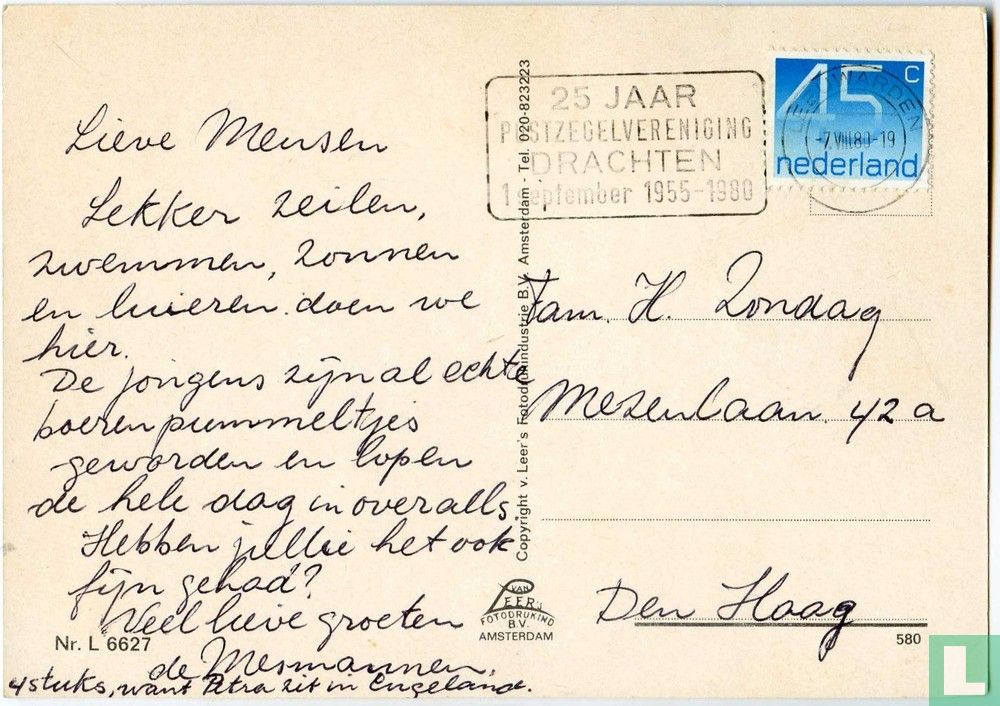 Lieve Mensen
Lekker zeilen,
zwemmen, zonnen
en luieren doen we
hier.
De jongens zijn al echte
boerenpummeltjes
geworden en lopen
de hele dag in overalls.
Hebben jullie het ook
fijn gehad?
Veel lieve groeten
de Mesmannen,
4 stuks, want Petra zit in Engeland.
Nr. L 6627
Copyright v. Leer's Fotodrukindustrie B.V. Amsterdam - Tel. 020-823223
VAN
LEER'S
FOTODRUKIND
B.V.
AMSTERDAM
25 JAAR
POSTZEGELVERENIGING
DRACHTEN
1 september 1955-1980
45 c
nederland
LEEUWARDEN
-7.VIII.80-19
Fam. H. Zondag
Mezenlaan 42a
Den Haag
580
L